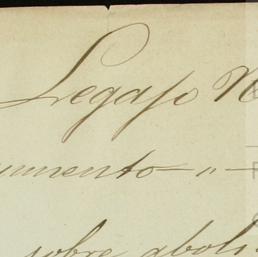 Legajo N
umento — " —
sobre aboli